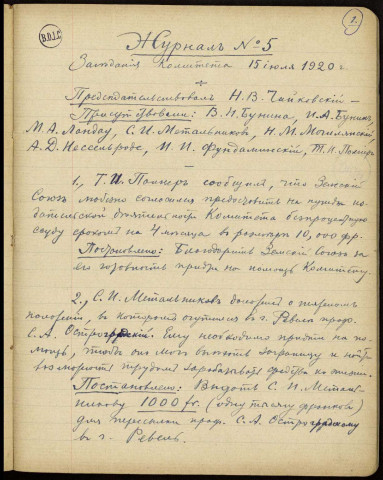 B.D.I.C
1.
Журналъ № 5
Заседанiя Комитета 15 iюля 1920 г.
Председательствовалъ Н. В. Чайковскiй —
Присутствовали: В. Н. Бунина, И. А. Бунинъ,
М. А. Ландау, С. И. Метальниковъ, Н. М. Могилянскiй,
А. Д. Нессельроде, И. И. Фундаминскiй, Т. И. Полнеръ
1., Т. И. Полнеръ сообщилъ, что Земскiй
Союзъ любезно согласился предоставить на нужды из-
дательской деятельности Комитета безпроцентную
ссуду срокомъ на 4 месяца въ размере 10,000 фр.
Постановлено: Благодарить Земскiй Союзъ за
его готовность придти на помощь Комитету.
2., С. И. Метальниковъ доложилъ о тяжеломъ
положенiи, въ которомъ очутился въ г. Ревеле проф.
С. А. Острогорскiй. Ему необходимо придти на по-
мощь, чтобы онъ могъ выехать заграницу и найти
возможность трудомъ зарабатывать средства къ жизни.
Постановлено: Выдать С. И. Металь-
никову 1000 fr. (одну тысячу франковъ)
для пересылки проф. С. А. Острогорскому
въ г. Ревель.